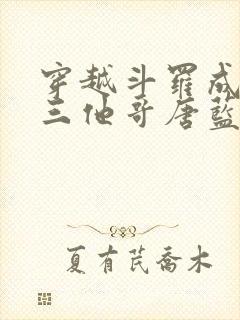 穿越斗羅成
三他哥唐藍
夏有芪喬木